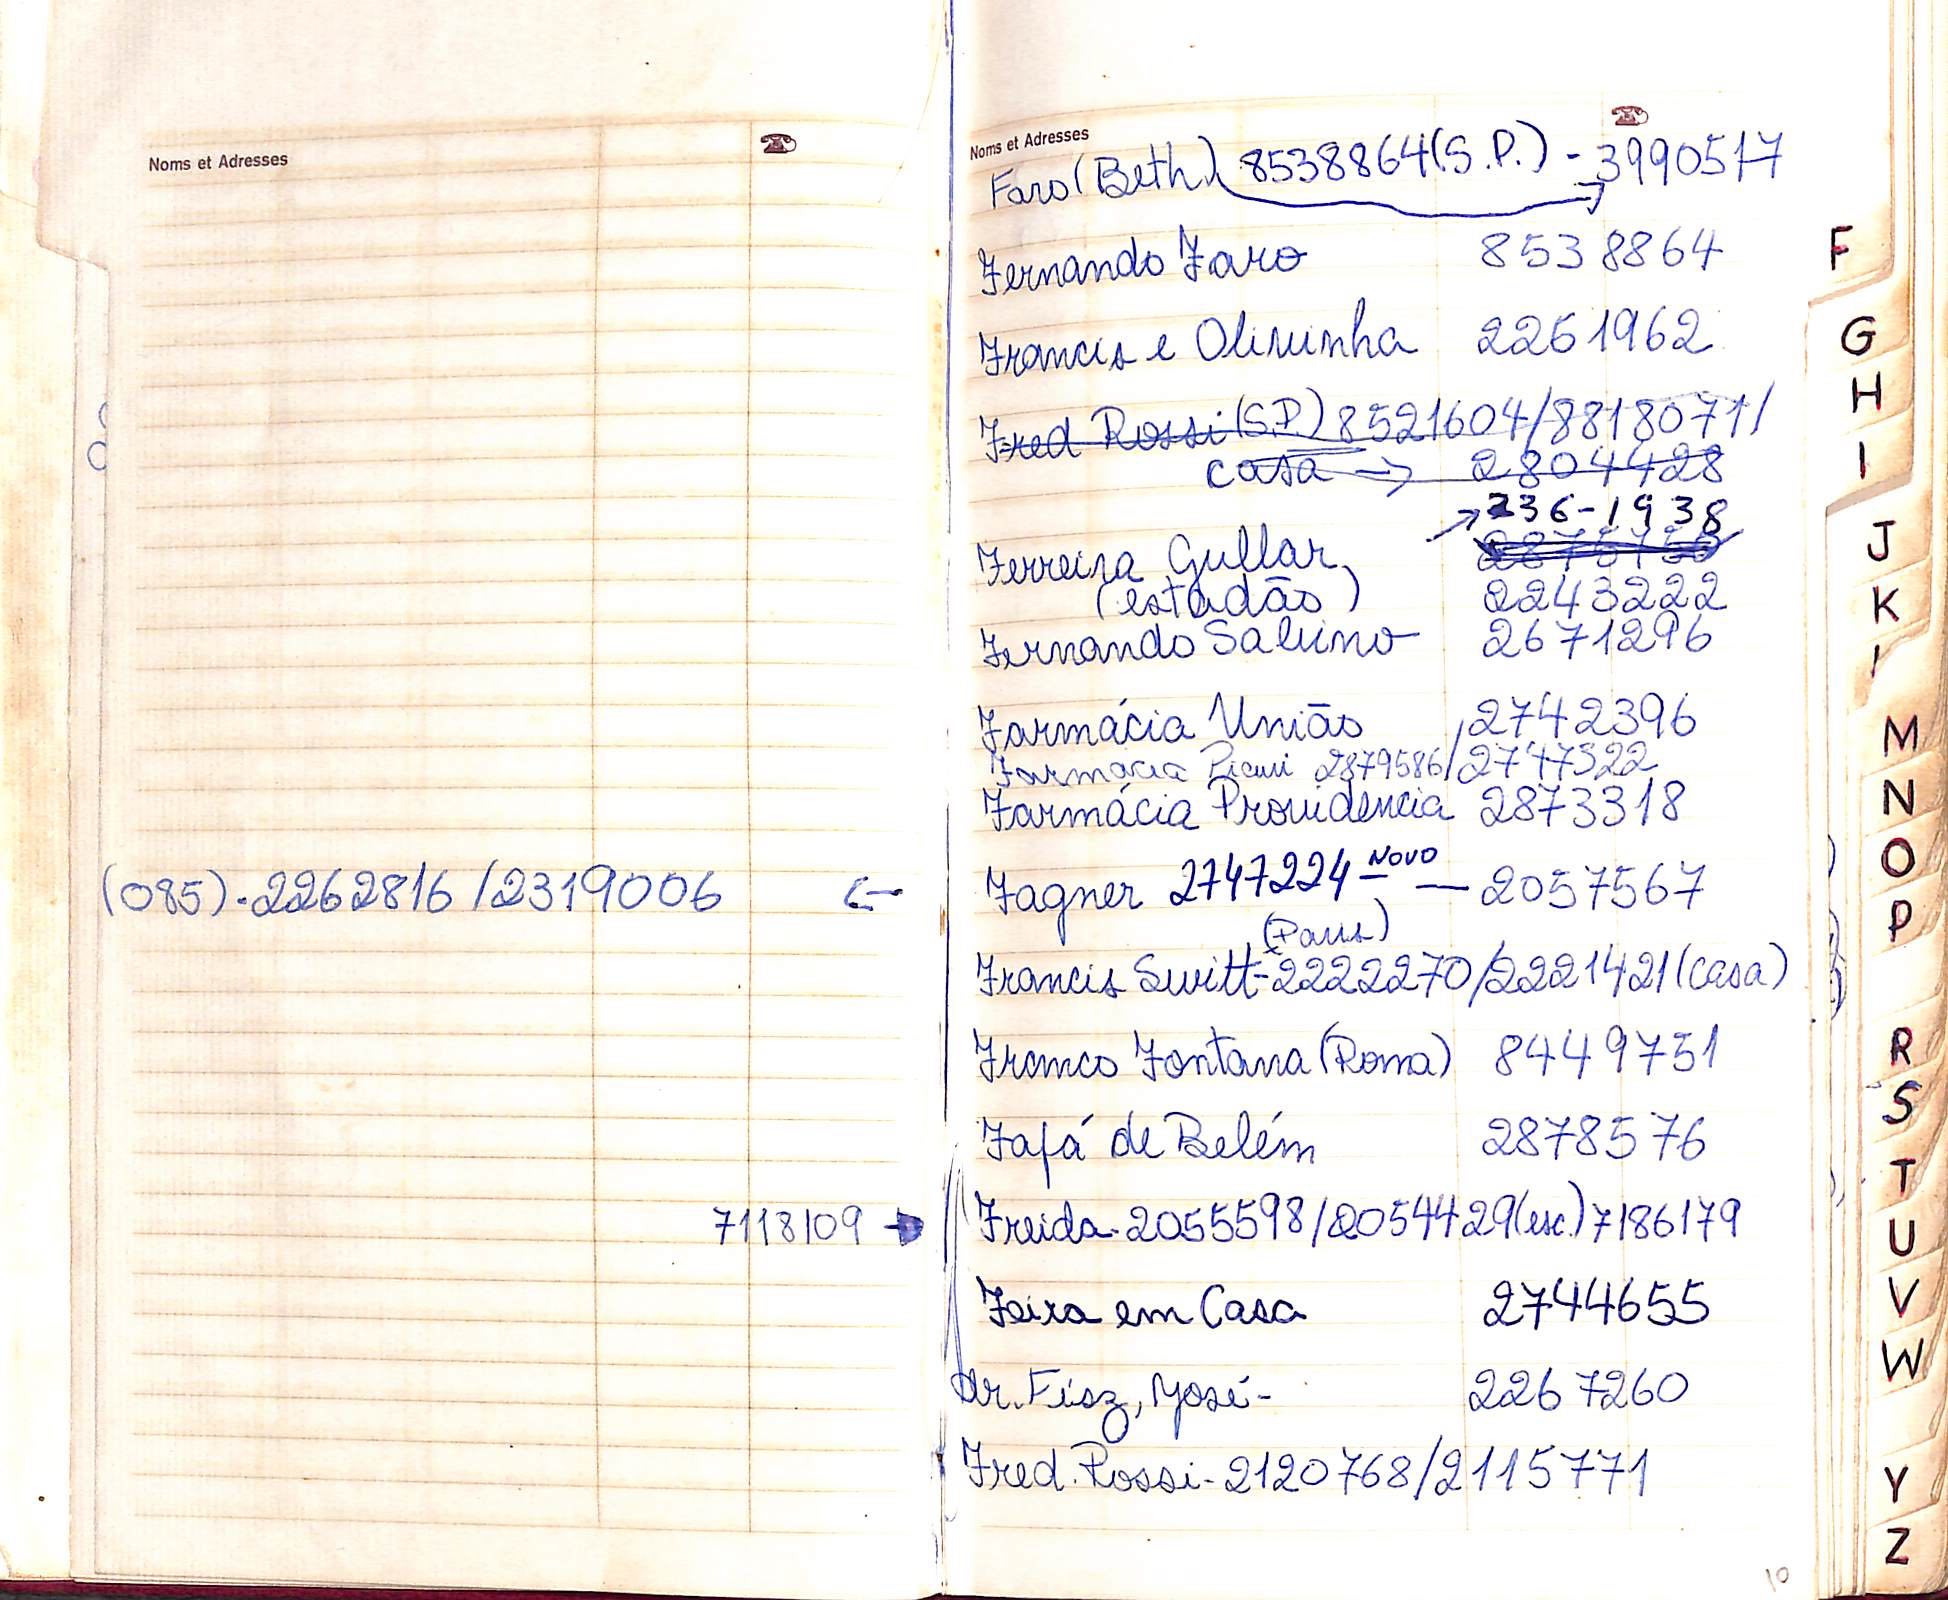 Noms et Adresses
(085).2262816/2319006 ←
7118109 →
Noms et Adresses
Faro (Beth) 8538864 (S.P.) - 3990517
Fernando Faro 8538864
Francis e Olivinha 2261962
Fred Rossi (S.P.) 8521604/8818071/
casa → 2804428
→ 236-1938
Ferreira Gullar
(estadão) 2243222
Fernando Sabino 2671296
Farmácia União 2742396
Farmácia Piauí 2879586/2747322
Farmácia Providencia 2873318
Fagner 2747224 - NOVO — 2057567
(Paris)
Francis Switt - 2222270/2221421 (casa)
Franco Fontana (Roma) 8449751
Fafá de Belém 2878576
Freida - 2055598/2054429 (esc.) 7186179
Feira em Casa 2744655
Dr. Fisz, José - 2267260
Fred. Rossi - 2120768/2115771
10
F
G
H
I
J
K
M
N
O
P
R
S
T
U
V
W
Y
Z